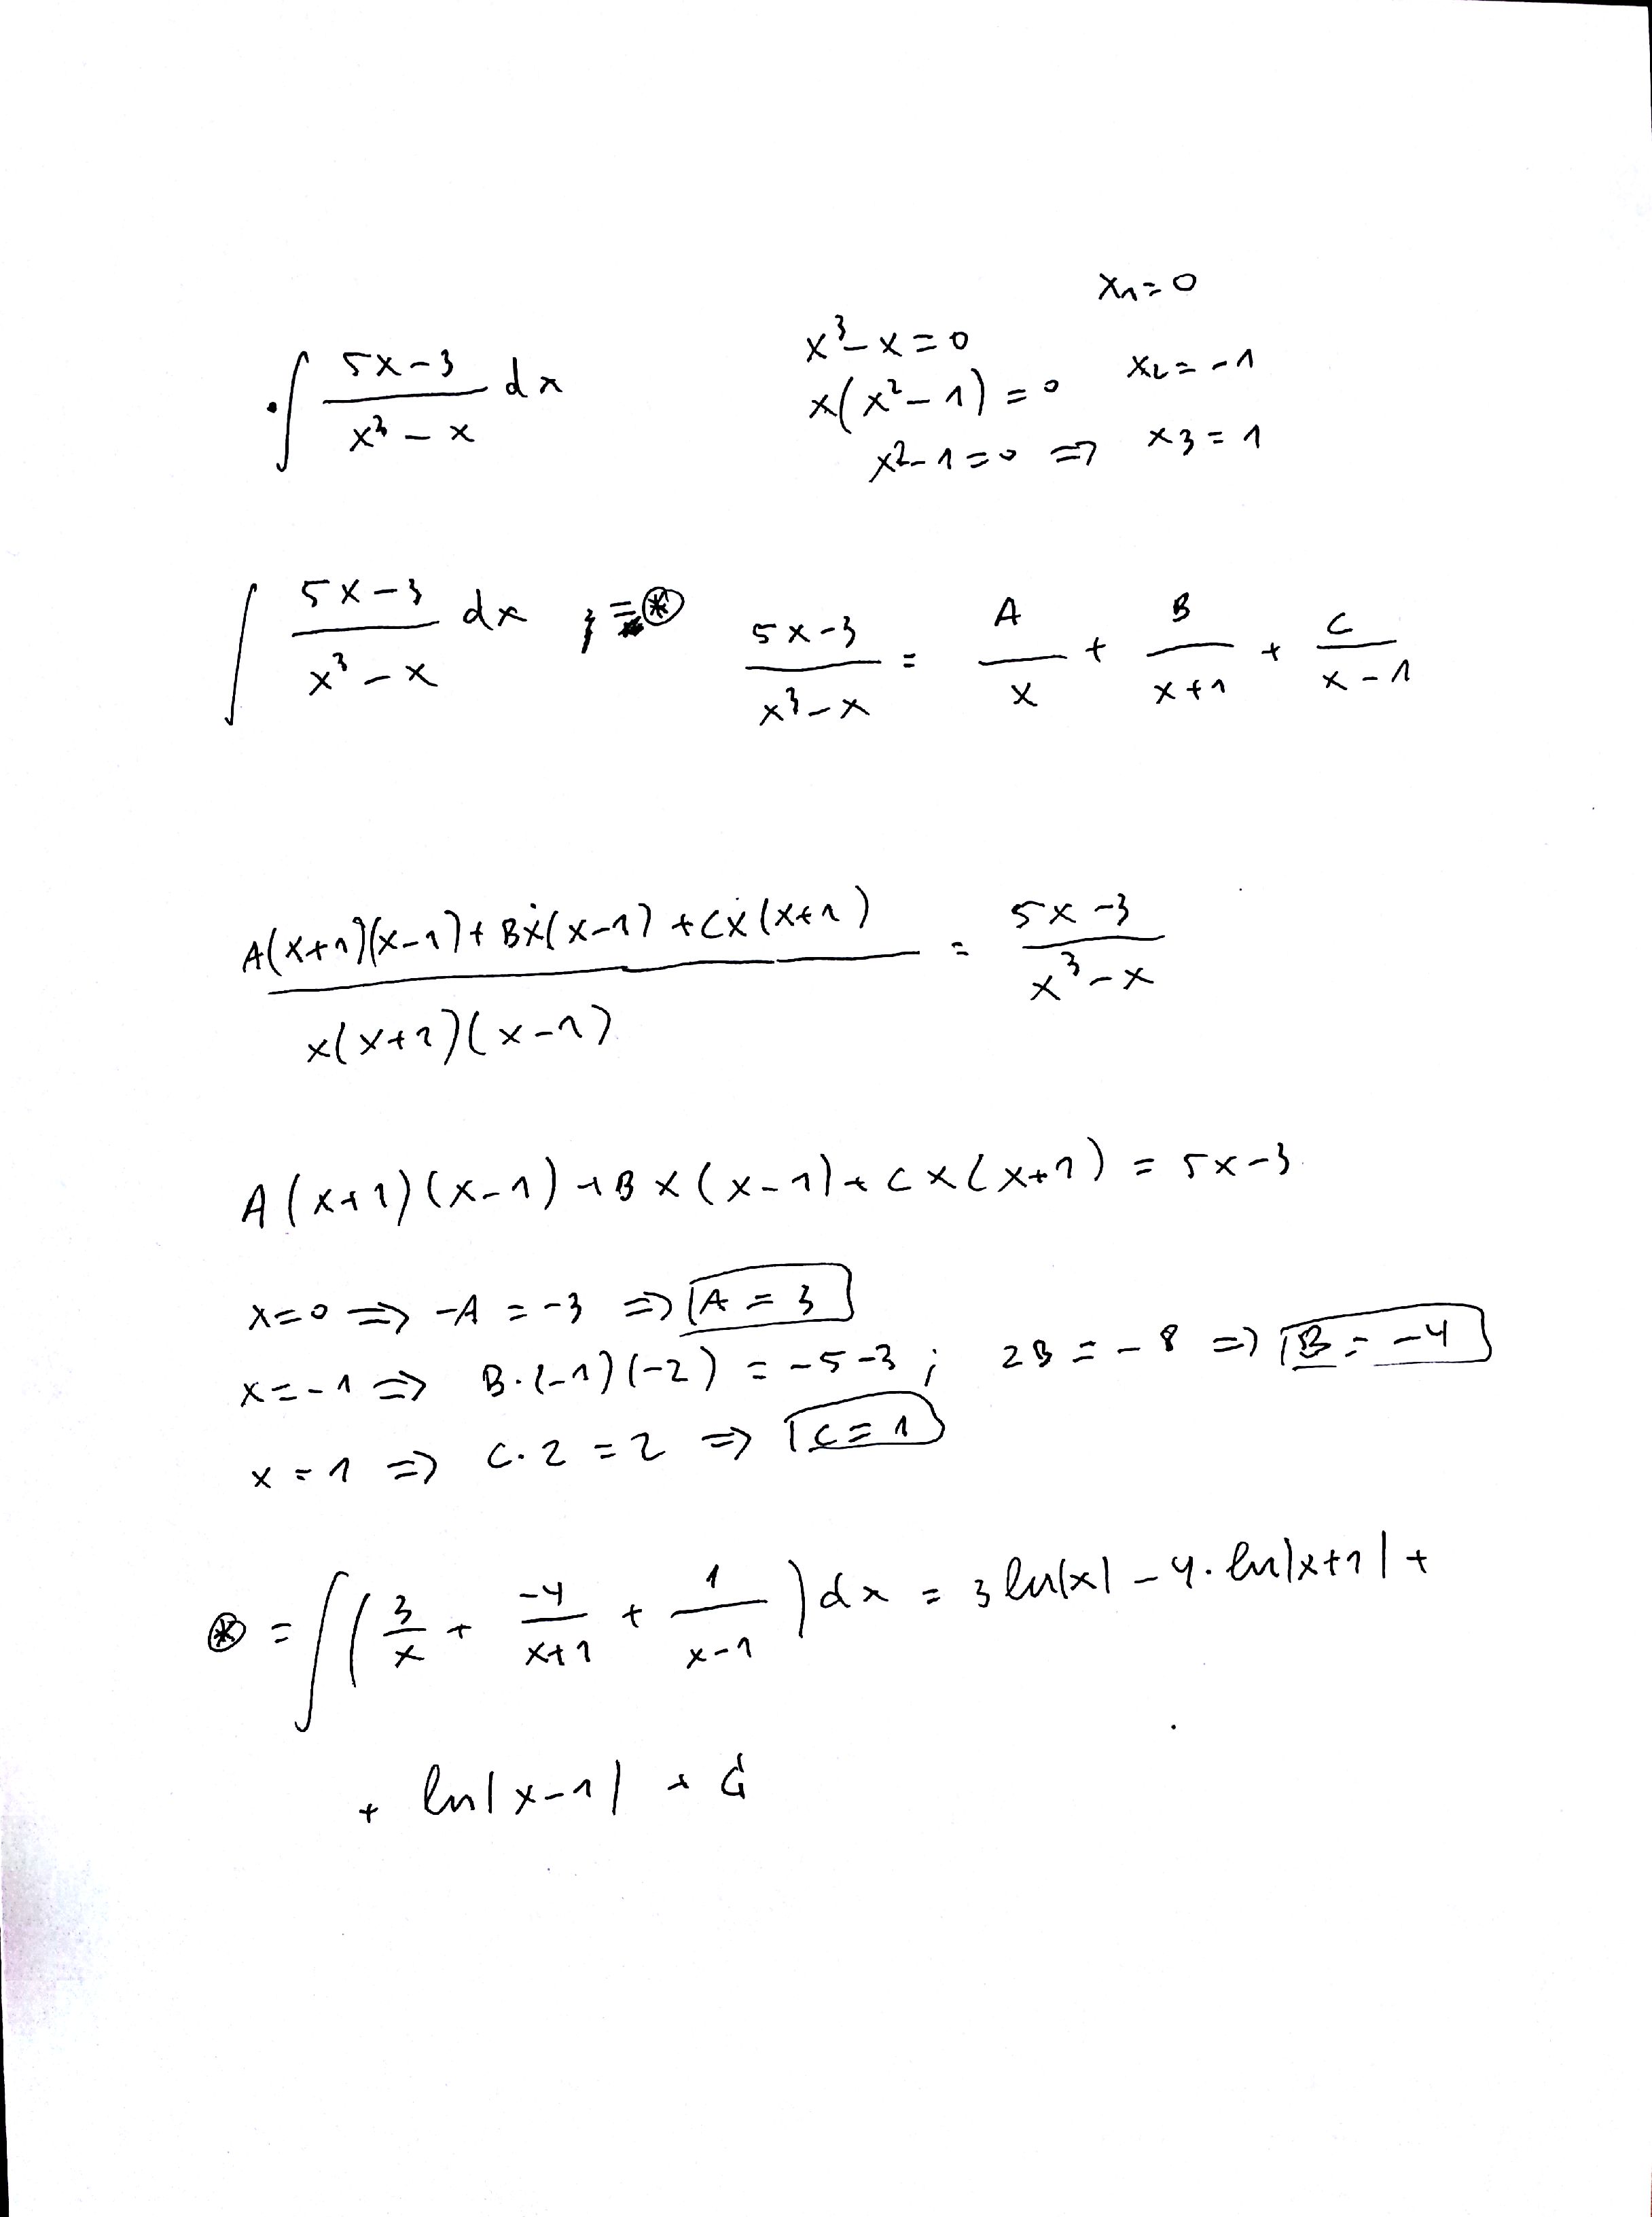 ∫ (5x-3)/(x³-x) dx
x³-x=0 x₁=0
x(x²-1)=0 x₂=-1
x²-1=0 ⇒ x3=1
∫ (5x-3)/(x³-x) dx = ⊛ (5x-3)/(x³-x) = A/x + B/(x+1) + C/(x-1)
(A(x+1)(x-1)+Bx(x-1)+Cx(x+1))/(x(x+1)(x-1)) = (5x-3)/(x³-x)
A(x+1)(x-1)+Bx(x-1)+Cx(x+1) = 5x-3
x=0 ⇒ -A = -3 ⇒ A = 3
x=-1 ⇒ B·(-1)(-2) = -5-3 ; 2B = -8 ⇒ B = -4
x=1 ⇒ C·2 = 2 ⇒ C=1
⊛ = ∫ (3/x + -4/(x+1) + 1/(x-1)) dx = 3 ln|x| - 4·ln|x+1| +
+ ln|x-1| + C